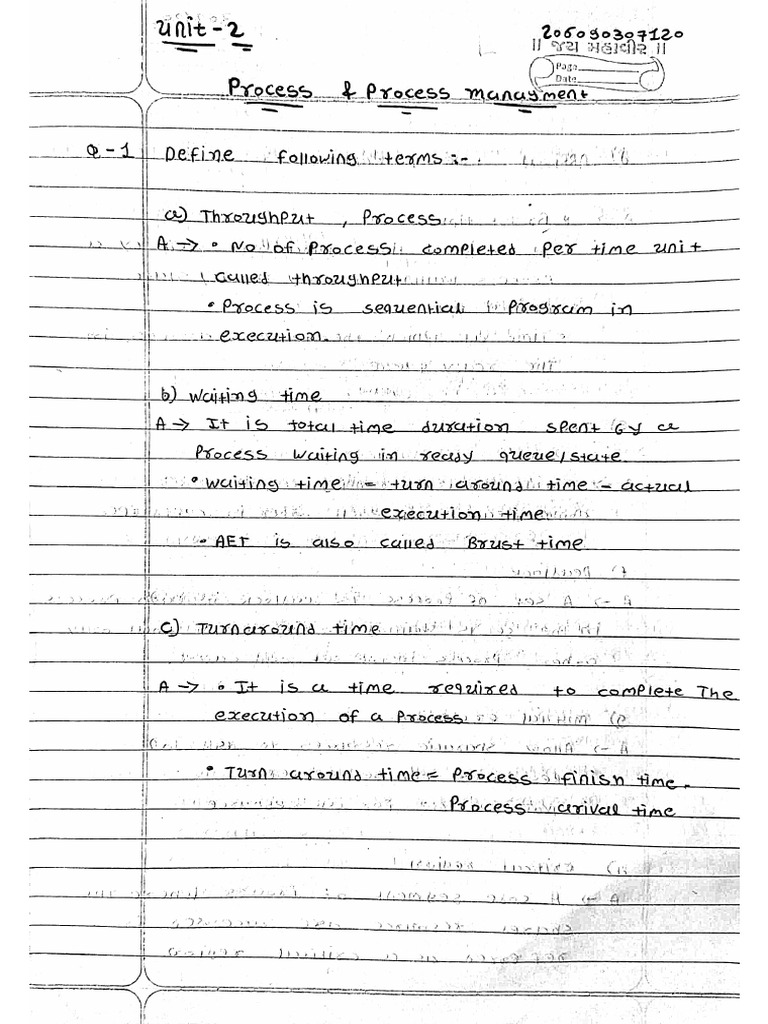 Unit-2
206090307120
|| જય મહાવીર ||
Page
Date
Process & Process managment
Q-1 Define following terms :-
a) Throughput , Process
A → • No of Process completed per time unit
called throughput
• Process is sequential Program in
execution.
b) Waiting time
A → It is total time duration spent by a
Process waiting in ready queue/state
• Waiting time = turn around time - actual
execution time
• AET is also called Brust time
c) Turnaround time
A → • It is a time required to complete The
execution of a Process
• Turn around time = Process finish time -
Process arival time